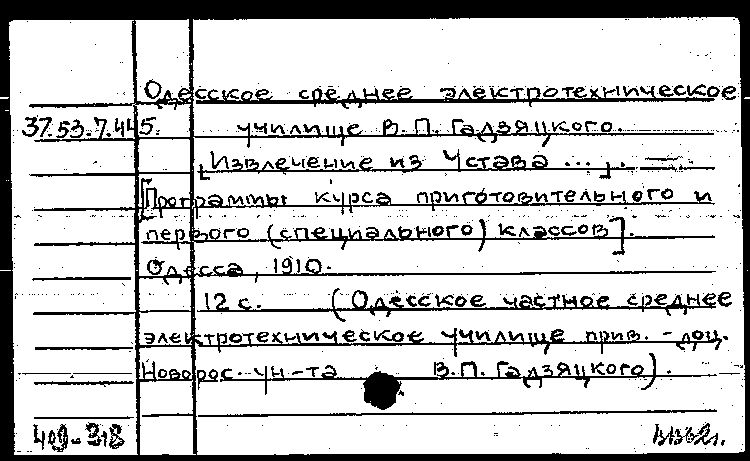 Одесское среднее электротехническое
37.53.7.445. училище В.П. Гадзяцкого.
[Извлечение из Устава ...]. —
[Программы курса приготовительного и
первого (специального) классов].
Одесса, 1910.
12 с. (Одесское частное среднее
электротехническое училище прив.-доц.
Новорос. ун-та В.П. Гадзяцкого).
409-318